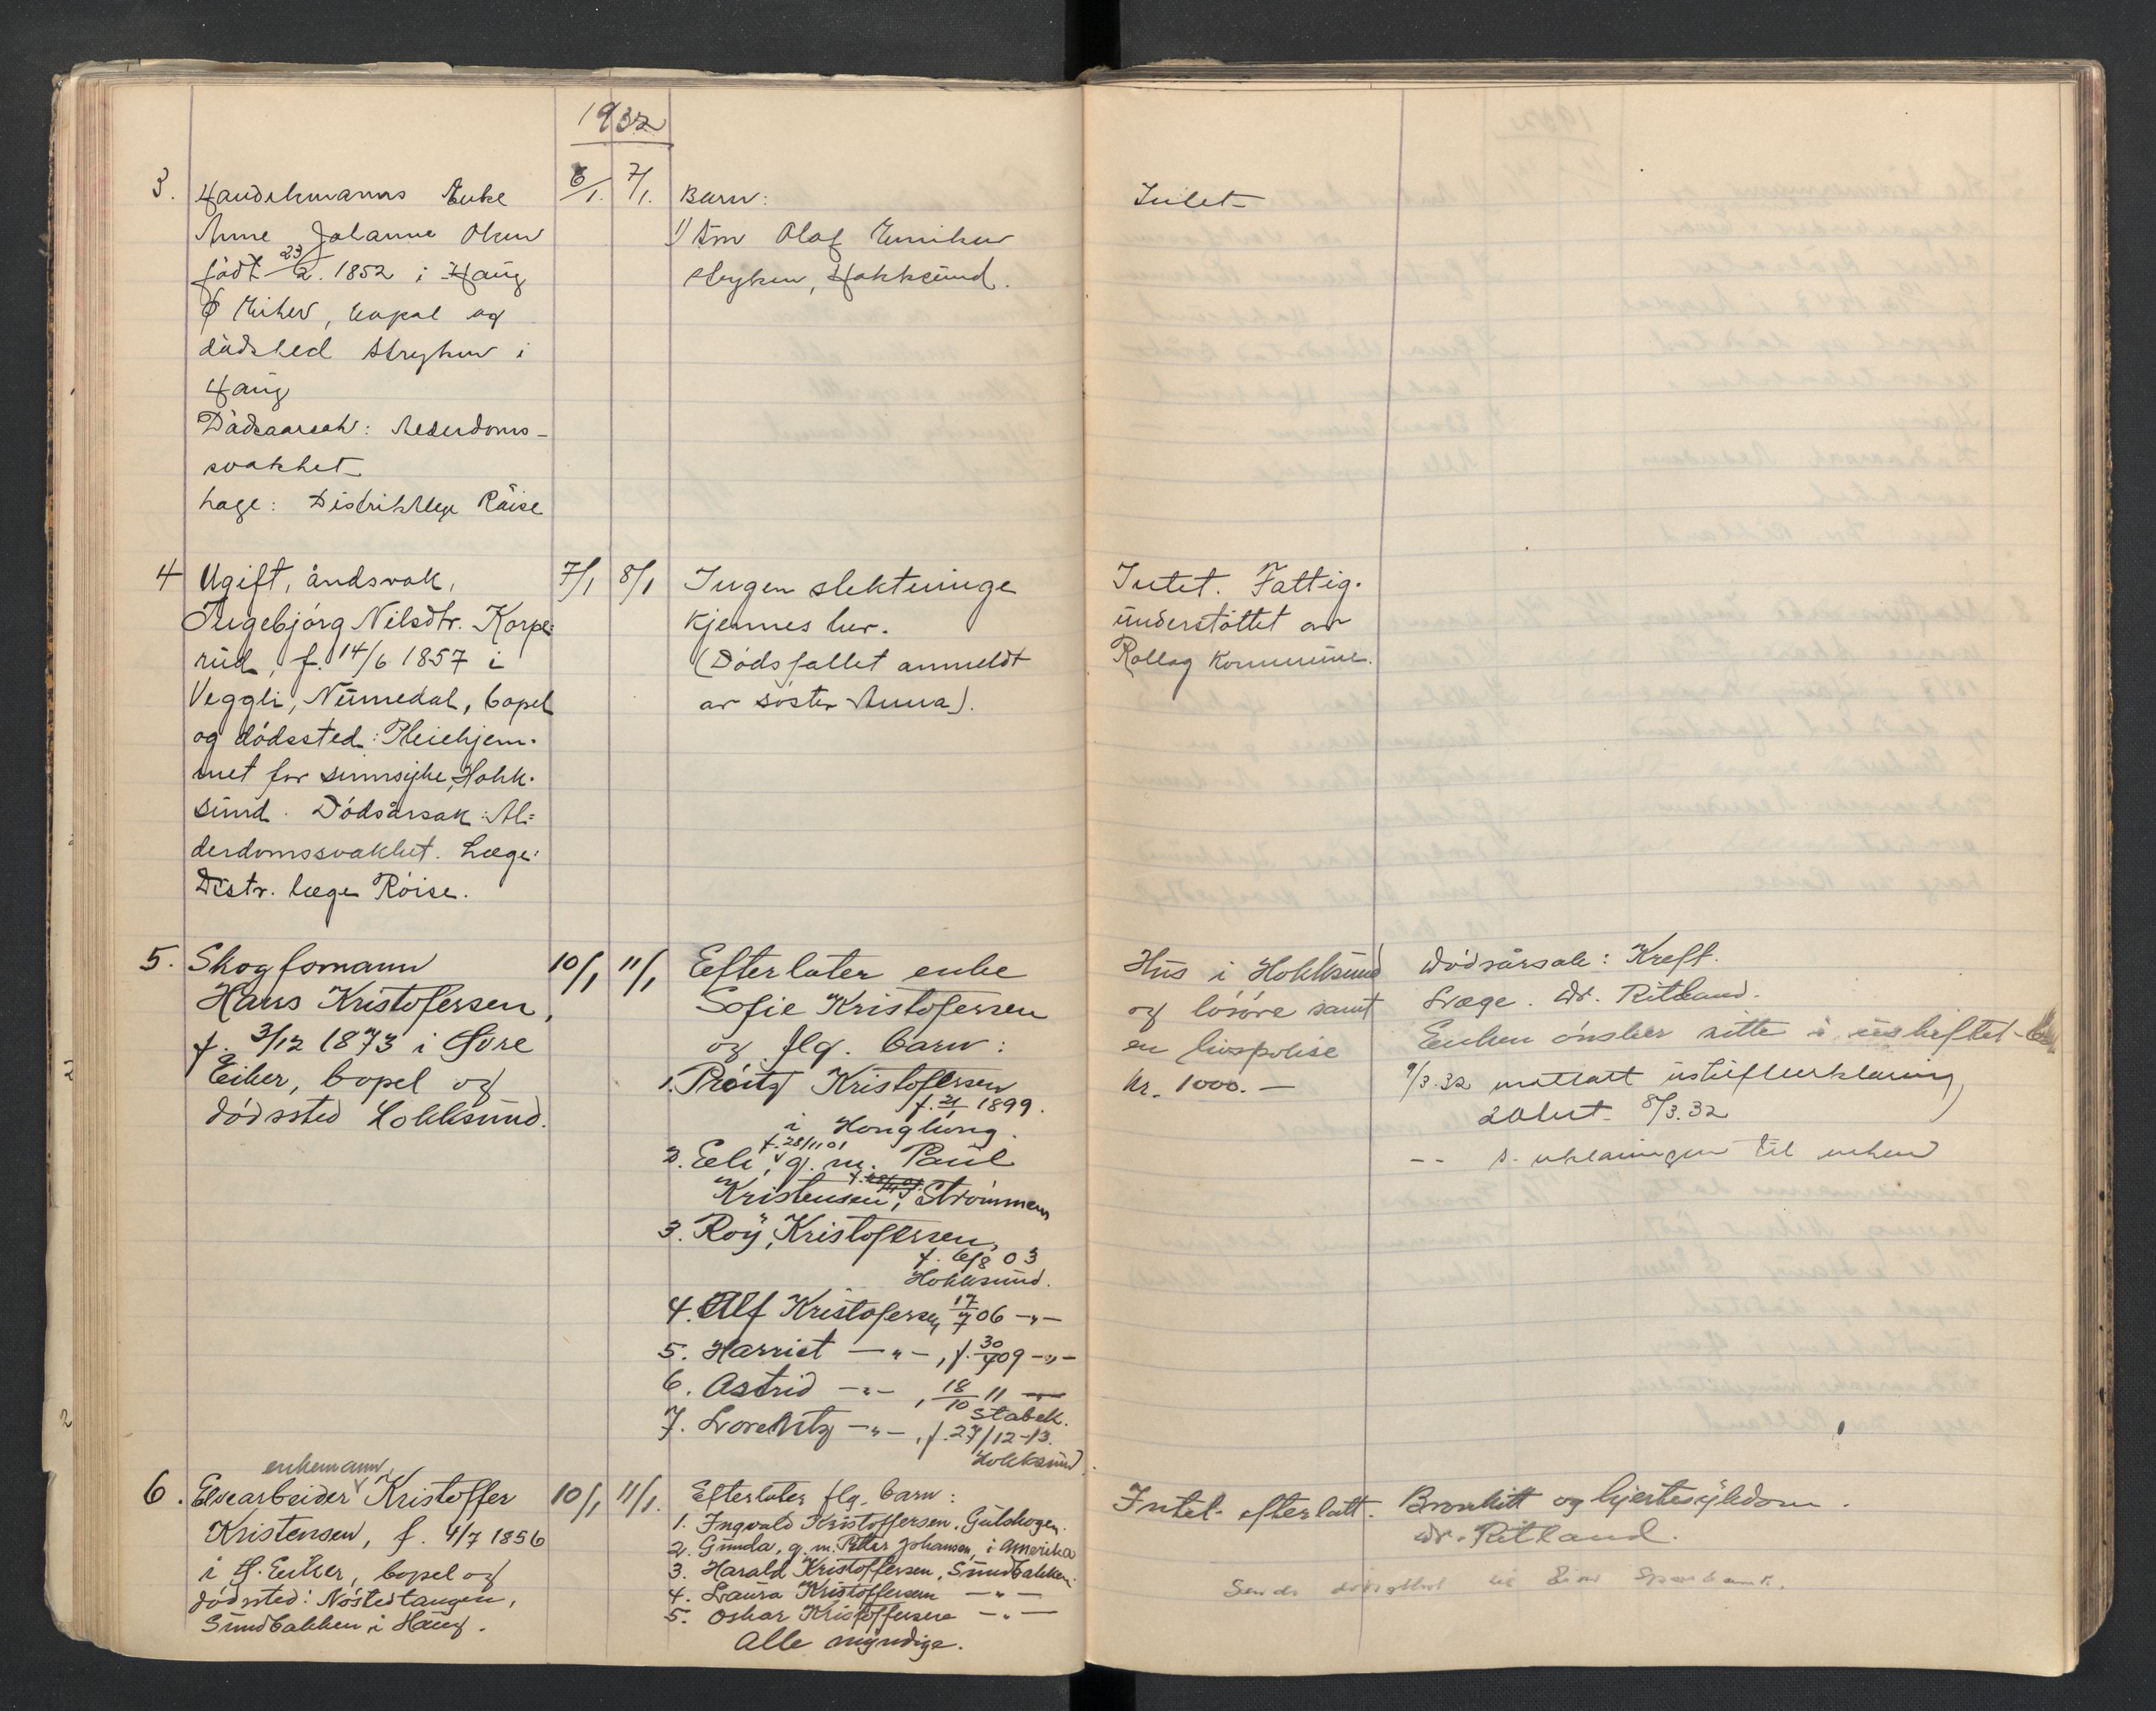 1932
3. Handelsmanns Enke
Anne Johanne Olsen
født 23/2. 1852 i Haug
Ø Eiker, bopel og
dödssted Stryken i
Haug
Dödsaarsak: Alderdoms-
svakhet
Læge: Distriktslæge Röise
6/1. 7/1.
Barn:
1)
Stryken, Hokksund.
Intet
4 Ugift, åndsvak,
Ingebjörg Nilsdtr. Korpe=
rud, f. 14/6 1857 i
Veggli, Numedal, bopel
og dödssted: Pleiehjem-
met for sinnsyke, Hokk-
sund. Dödsårsak: Al=
derdomssvakhet. Læge:
Distr. læge Röise.
7/1 8/1
Ingen slektninge
kjennes her.
(Dödsfallet anmeldt
av söster Anna).
Intet. Fattig-
understöttet av
Rollag Kommune.
5. Skogformann
Hans Kristofersen,
f. 3/12 1873 i Övre
Eiker, bopel og
dödssted Hokksund.
10/1 11/1
Efterlater enke
Sofie Kristofersen
og flg. barn:
1. Kristofersen
f. 21/1 1899.
i Honglung.
f. 28/11 01
2. Eli, g. m. Paul
Kristensen, Strömmen
3. Roy, Kristofersen,
f. 6/8 03
Hokksund.
4. Alf Kristofersen 17/7 06 -"-
5. Harriet -"-, f. 30/7 09 -"-
6. Astrid -"-, 18/10 11
Stabek.
7. Lorentz -"-, f. 27/12-13.
Hokksund.
Hus i Hokksund
og lösöre samt
en livspolise
kr. 1000.-
Dödsårsak: Kreft.
Læge. Dr. Ritland.
Enken önsker sitte i uskiftet
9/3.32 mottatt uskifteerklæring
8/3.32
-- s. erklæringen til enken
enkemann
6. Elvearbeider Kristoffer
Kristensen, f. 4/7 1856
i Ø. Eiker, bopel og
dödssted: Nöstetangen,
Sundbakken i Haug.
10/1 11/1.
Efterlater flg. barn:
1. Ingvald Kristoffersen, Gulskogen.
2. Gunda, g. m. Petter Johansen, i Amerika
3. Harald Kristoffersen, Sundbakken.
4. Laura Kristoffersen -"-
5. Oskar Kristoffersen -"-
Alle myndige.
Intet efterlatt.
Bronkitt og hjertesykdom.
Dr. Ritland.
Sendt til Eiker Sparebank.